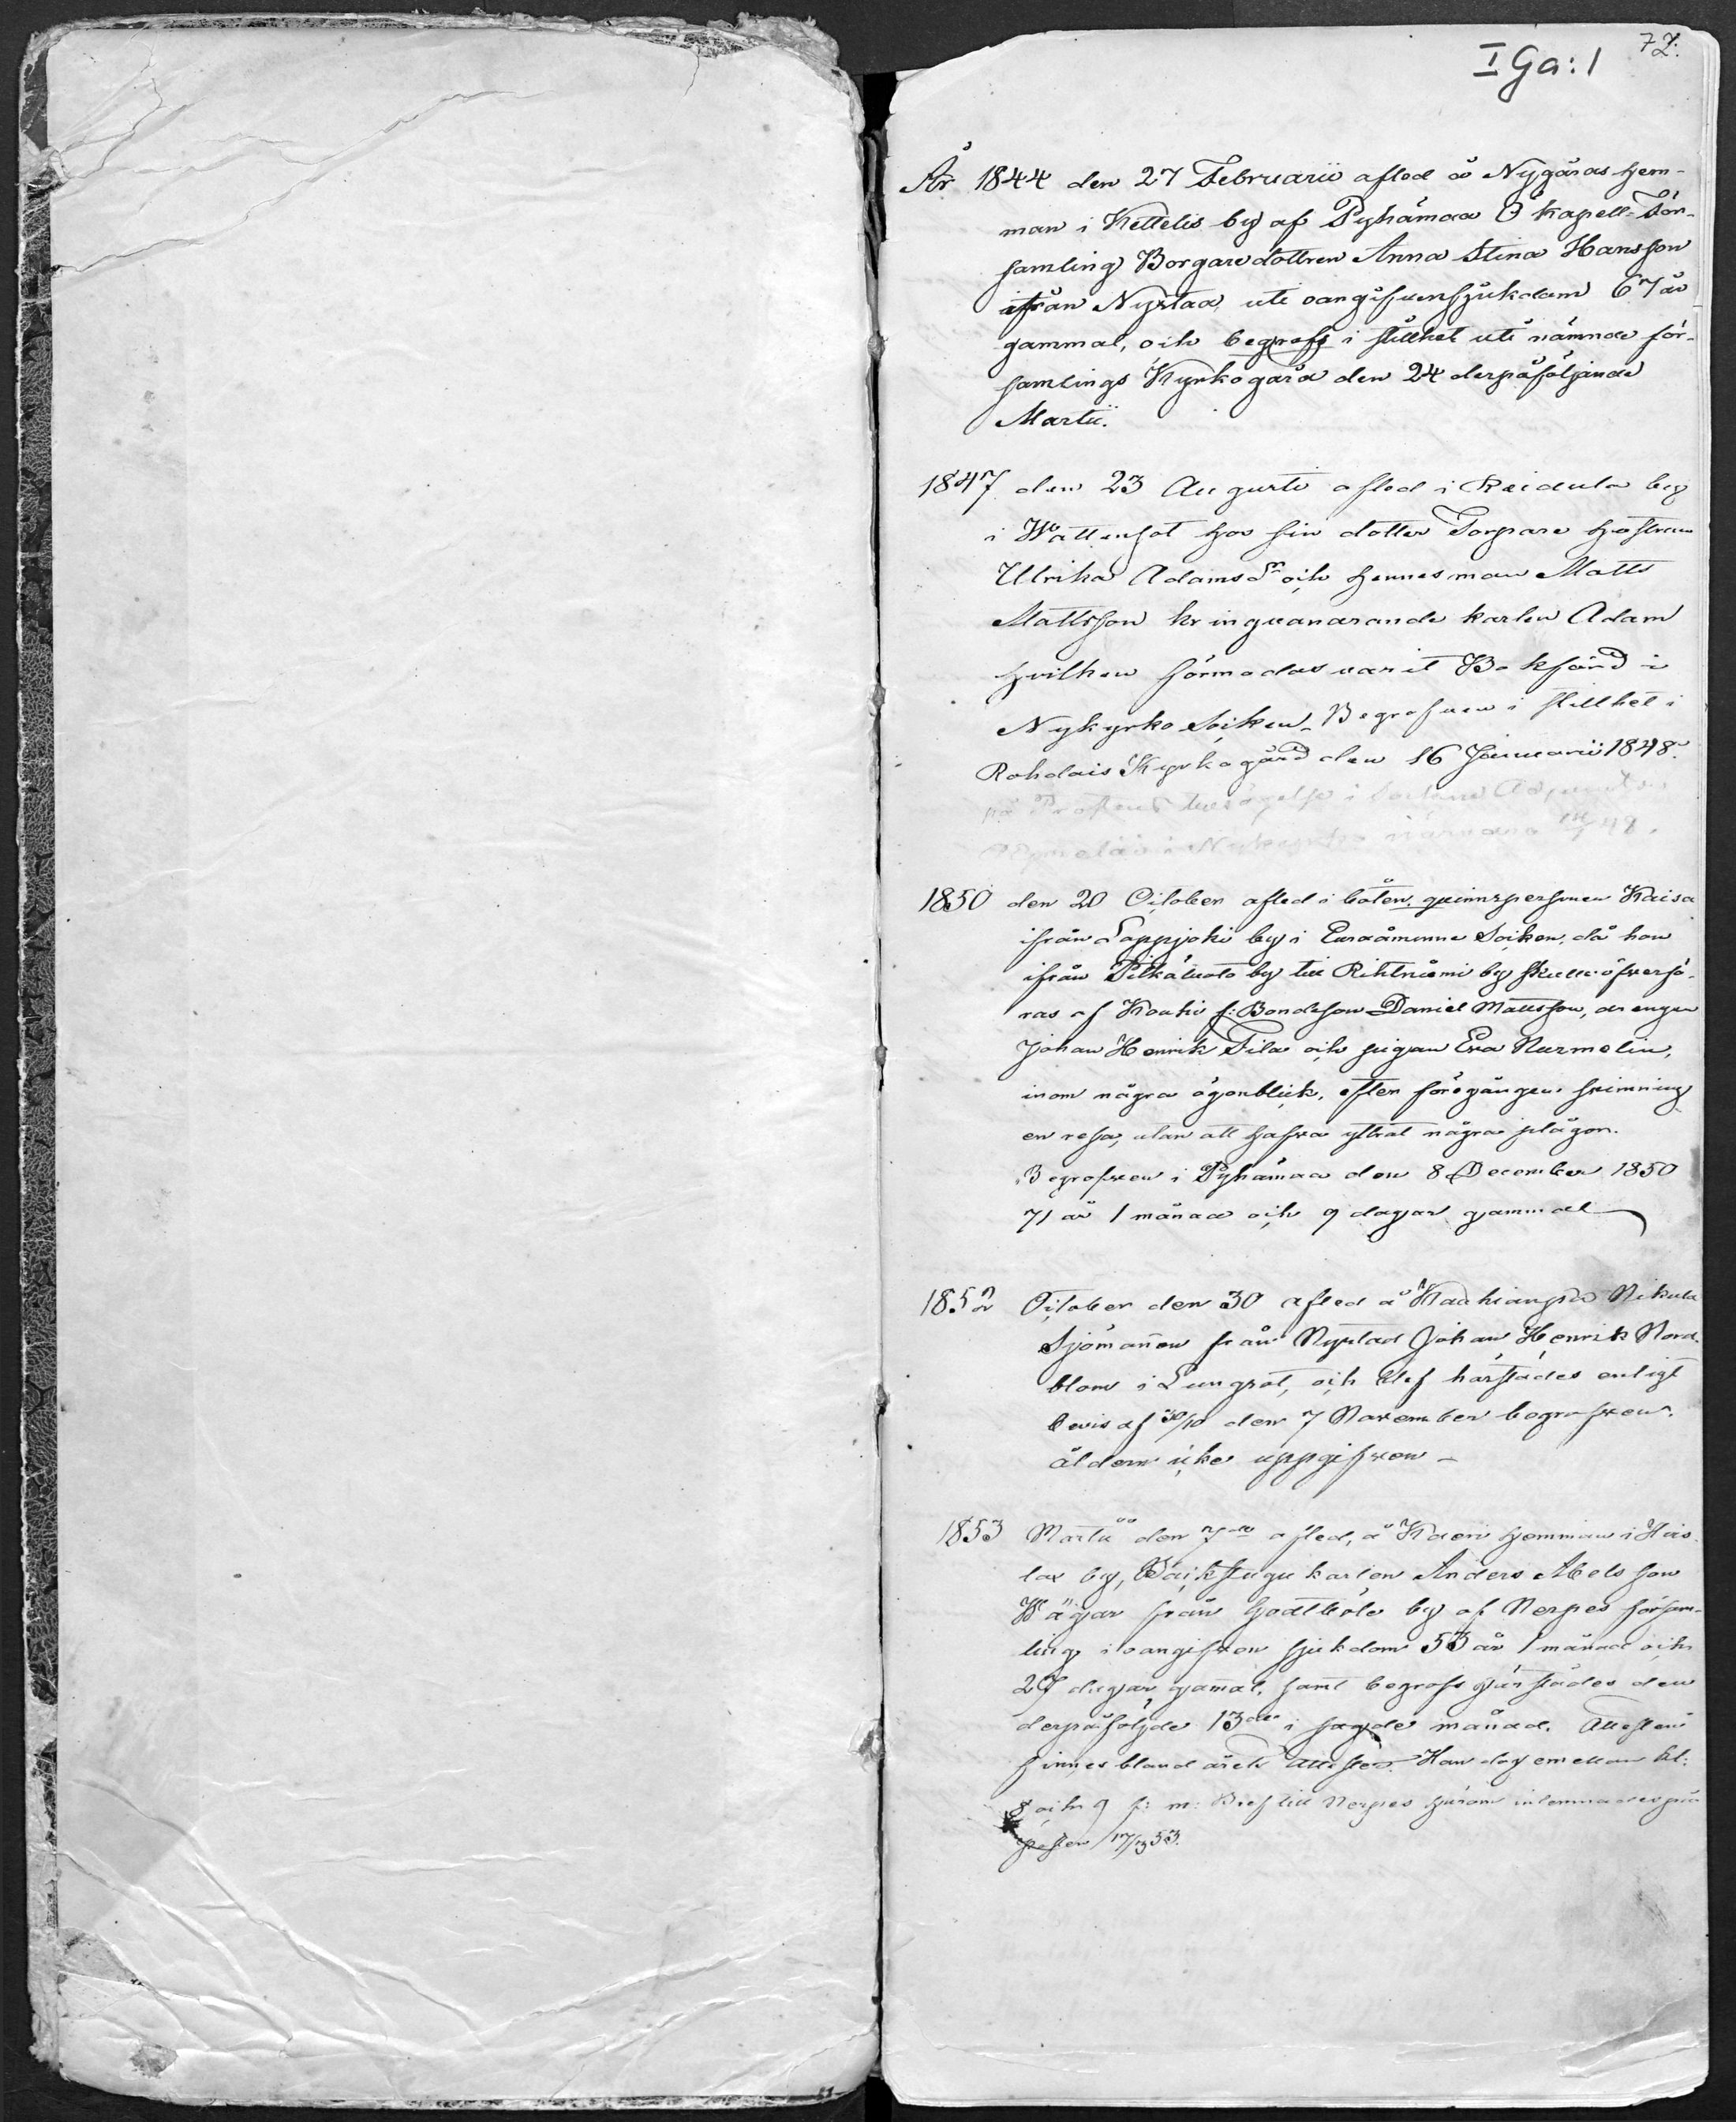 I Ga: 1
72.
År 1844 den 27 Februarii afled å Nygårds hem-
man i Kettelis by af Pyhämaa Ö kapell-För-
samling Borgaredottren Anna Stina Hansson
ifrån Nystad, uti oangifven sjukdom 67 år
gammal, och begrofs i stillhet uti nämnde för-
samlings Kyrkogård den 24 derpåföljande
Martii.
1847 den 23 Augusti afled i Reidula by
i hos sin dotter Torpare hustrun
Ulrika Adamsdr och hennes man Matts
Mattsson kringvandrande karlen Adam
hvilken förmodas varit Bokförd i
Nykyrko Socken. Begrafven i stillhet i
Rohdais Kyrkogård den 16 Januarii 1848.
på Prostens
i Nykyrko 48.
1850 den 20 October afled i båten qvinnspersonen Kaisa
ifrån Lappjoki by i Euraåminne Socken, då hon
ifrån Pitkäluoto by till Rihtniemi by skulle öfverfö-
ras af Kouhi f: Bondeson Daniel Mattsson, drengen
Johan Henrik Fila och pigan Eva Nurmelin,
inom några ögonblick, efter föregången svimning
en resa, utan att hafva yttrat några plågor.
Begrafven i Pyhämaa den 8 December 1850
71 år 1 månad och 9 dagar gammal
1852 October den 30 afled å Nikula
Sjömannen från Nystad Johan Henrik Nord-
blom i Lungsot, och blef härstädes enligt
bevis af 30/10 den 7 November begrafven.
åldern icke uppgifven -
1853 Martii den 7de afled, å Kaeri hemman i
lax by, Bäckstugu karlen Anders Abelsson
Wägar från Godtböle by af Nerpes försam-
ling i oangifven sjukdom 53 år 1 månad och
27 dagar gamal, samt begrofs härstädes den
derpåföljde 13de i sagde månad. Attesten
finnes bland årets attester. Han dog emellan kl:
8 och 9 f: m: Bref till Nerpes härom inlemnades på
posten 17/3 53.